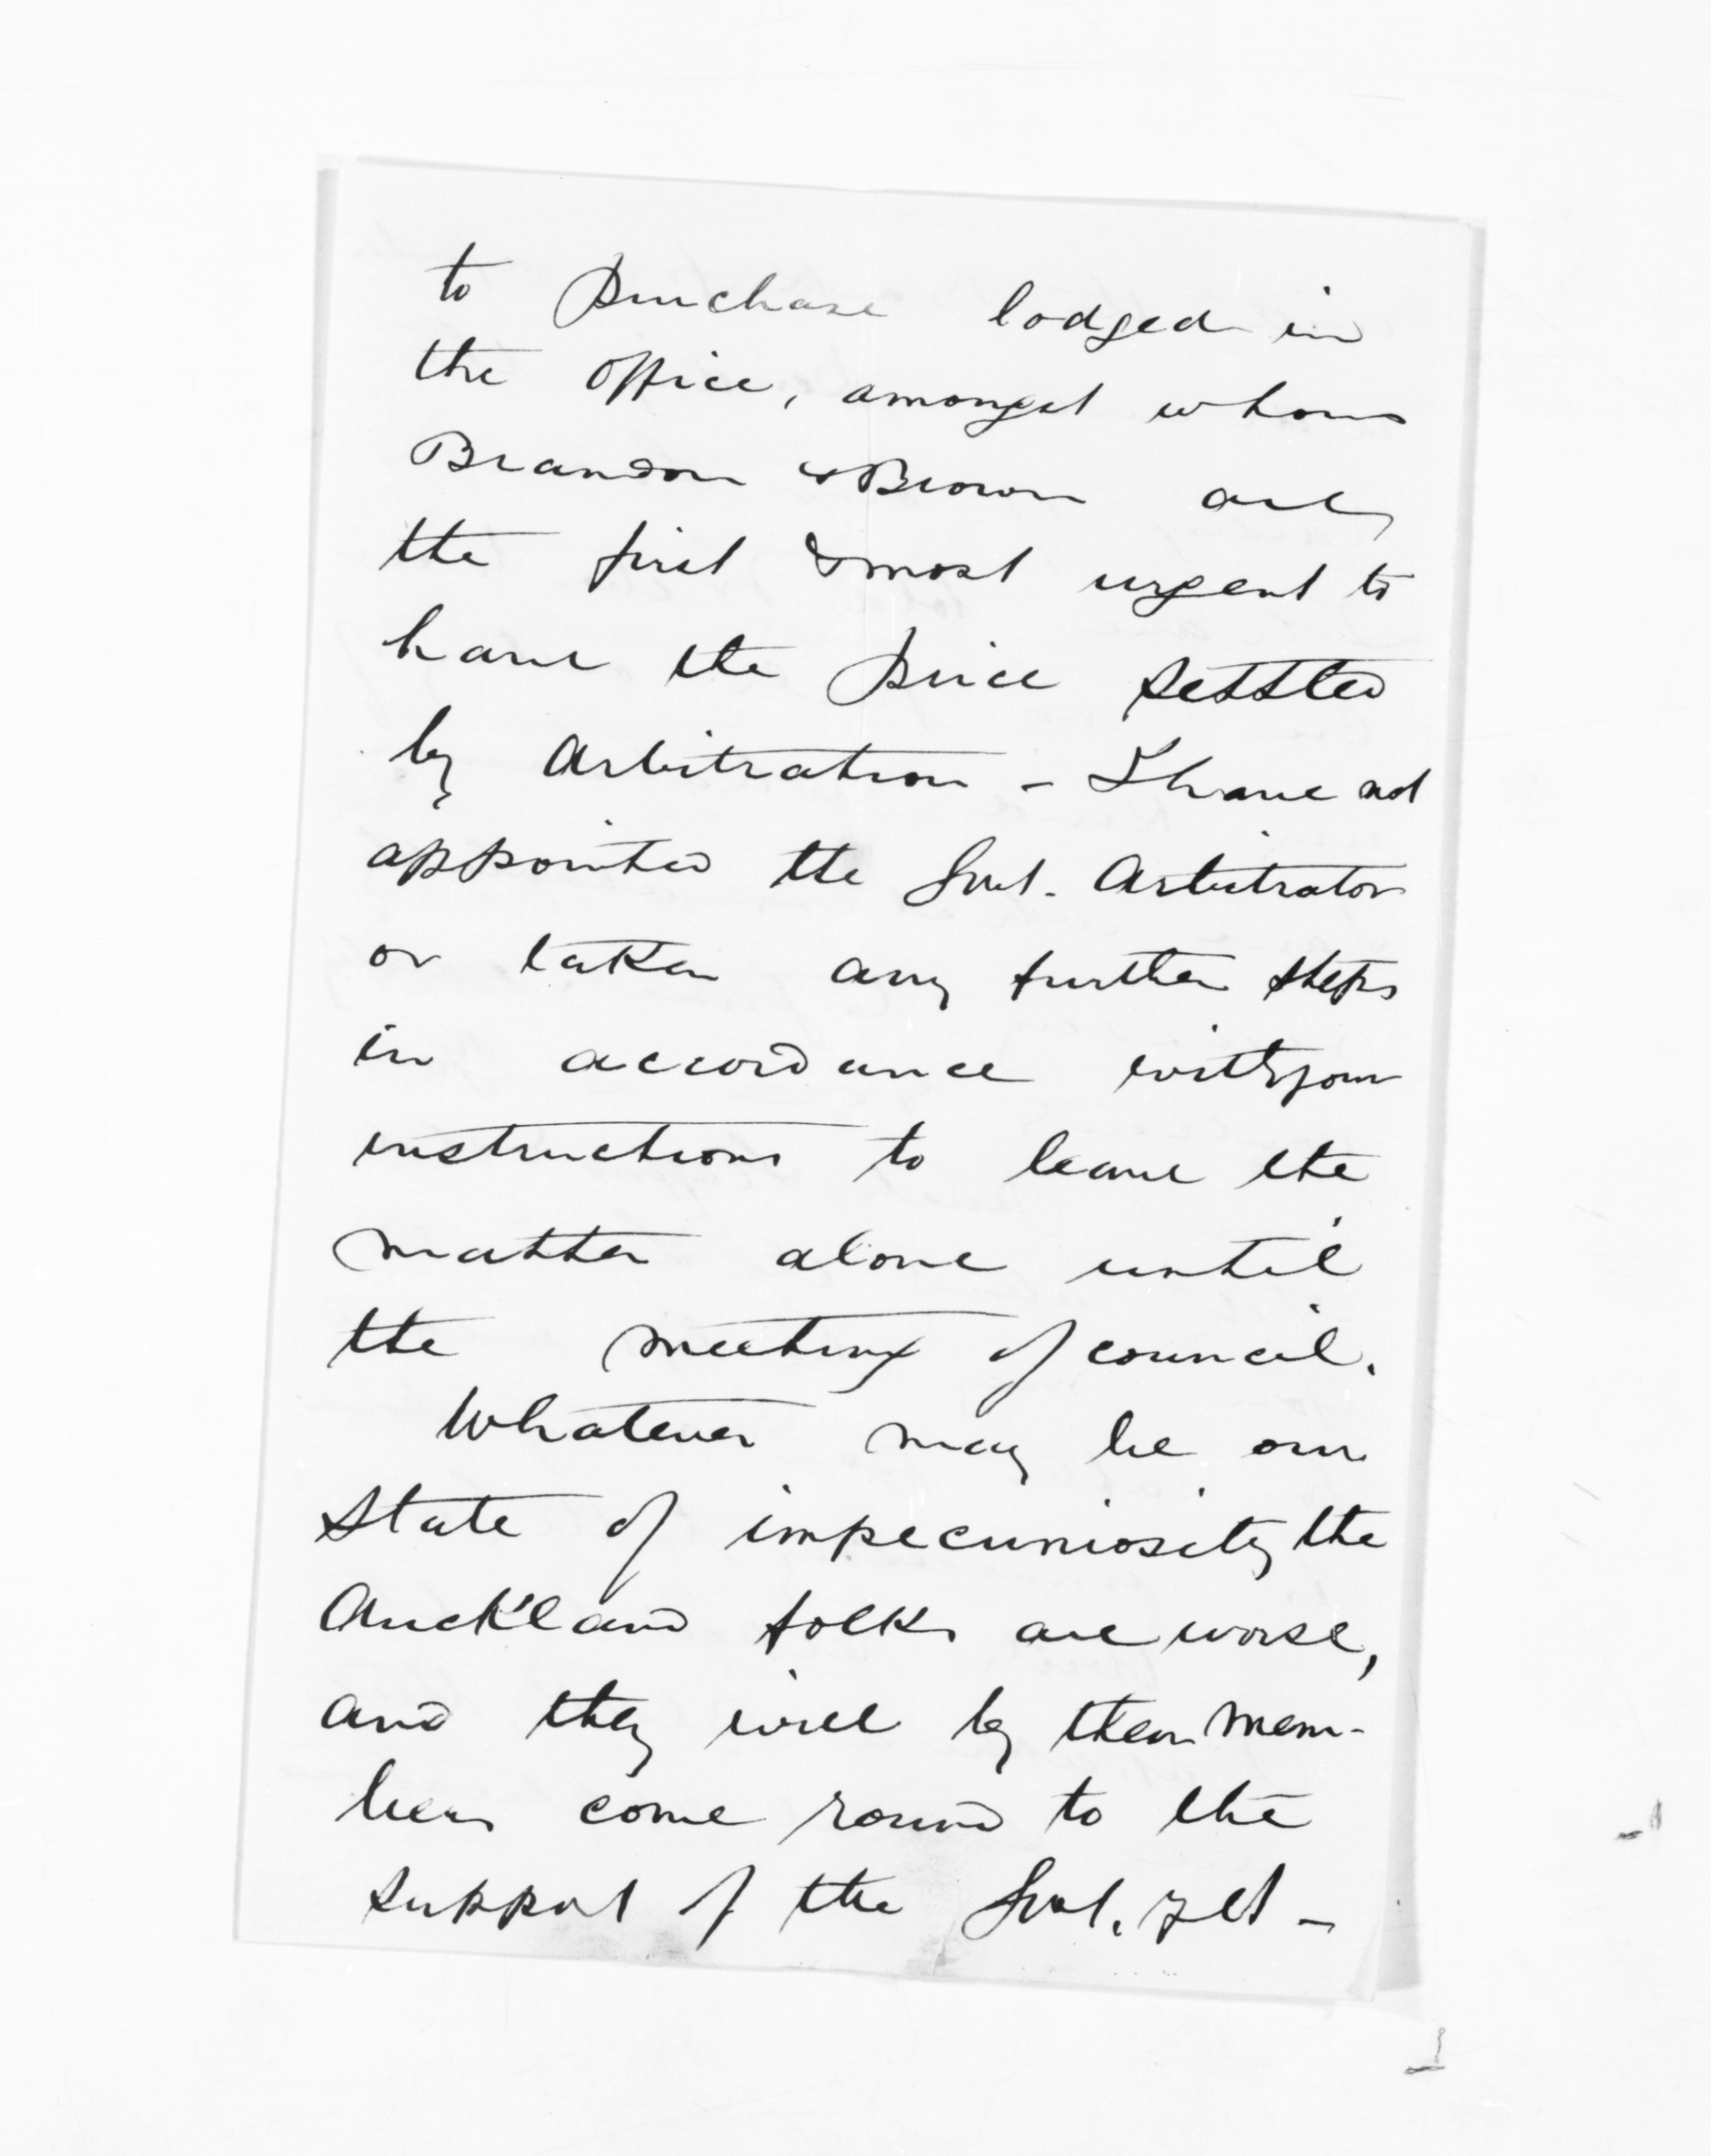 to purchase lodged in
the office, amongst whom
Brandon & Brown are
the first & most urgent to
have the price settled
by Arbitration - I have not
appointed the Govt. Arbitrator
or taken any further steps
in accordance with your
instructions to leave the
matter alone until
the meeting of council.
Whatever may be our
state of impecuniosity the
Auckland folks are worse,
and they will by their mem-
bers come round to the
support of the Govt. yet -